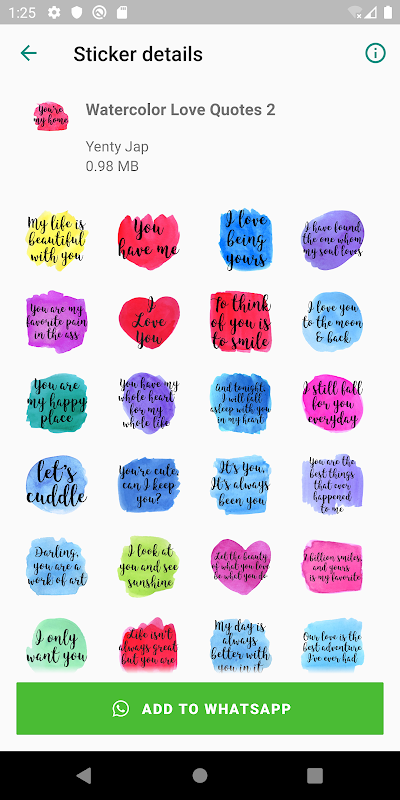 1:25
Sticker details
You're
my home
Watercolor Love Quotes 2
Yenty Jap
0.98 MB
My life is
beautiful
with you
You
have me
I love
being
yours
I have found
the one whom
my soul loves
You are my
favorite pain
in the ass
I
Love
You
To think
of you is
to smile
I love you
to the moon
& back
You are
my happy
place
You have my
whole heart
for my
whole life
And tonight,
I will fall
asleep with you
in my heart
I still fall
for you
everyday
let's
cuddle
You're cute
can I keep
you?
It's You,
It's always
been you
You are the
best things
that ever
happened
to me
Darling,
you are a
work of art
I look at
you and see
sunshine
Let the beauty
of what you love
be what you do
1 billion smiles,
and yours
is my favorite
I only
want you
Life isn't
always great
but you are
My day is
always
better with
you in it
Our love is the
best adventure
I've ever had
ADD TO WHATSAPP